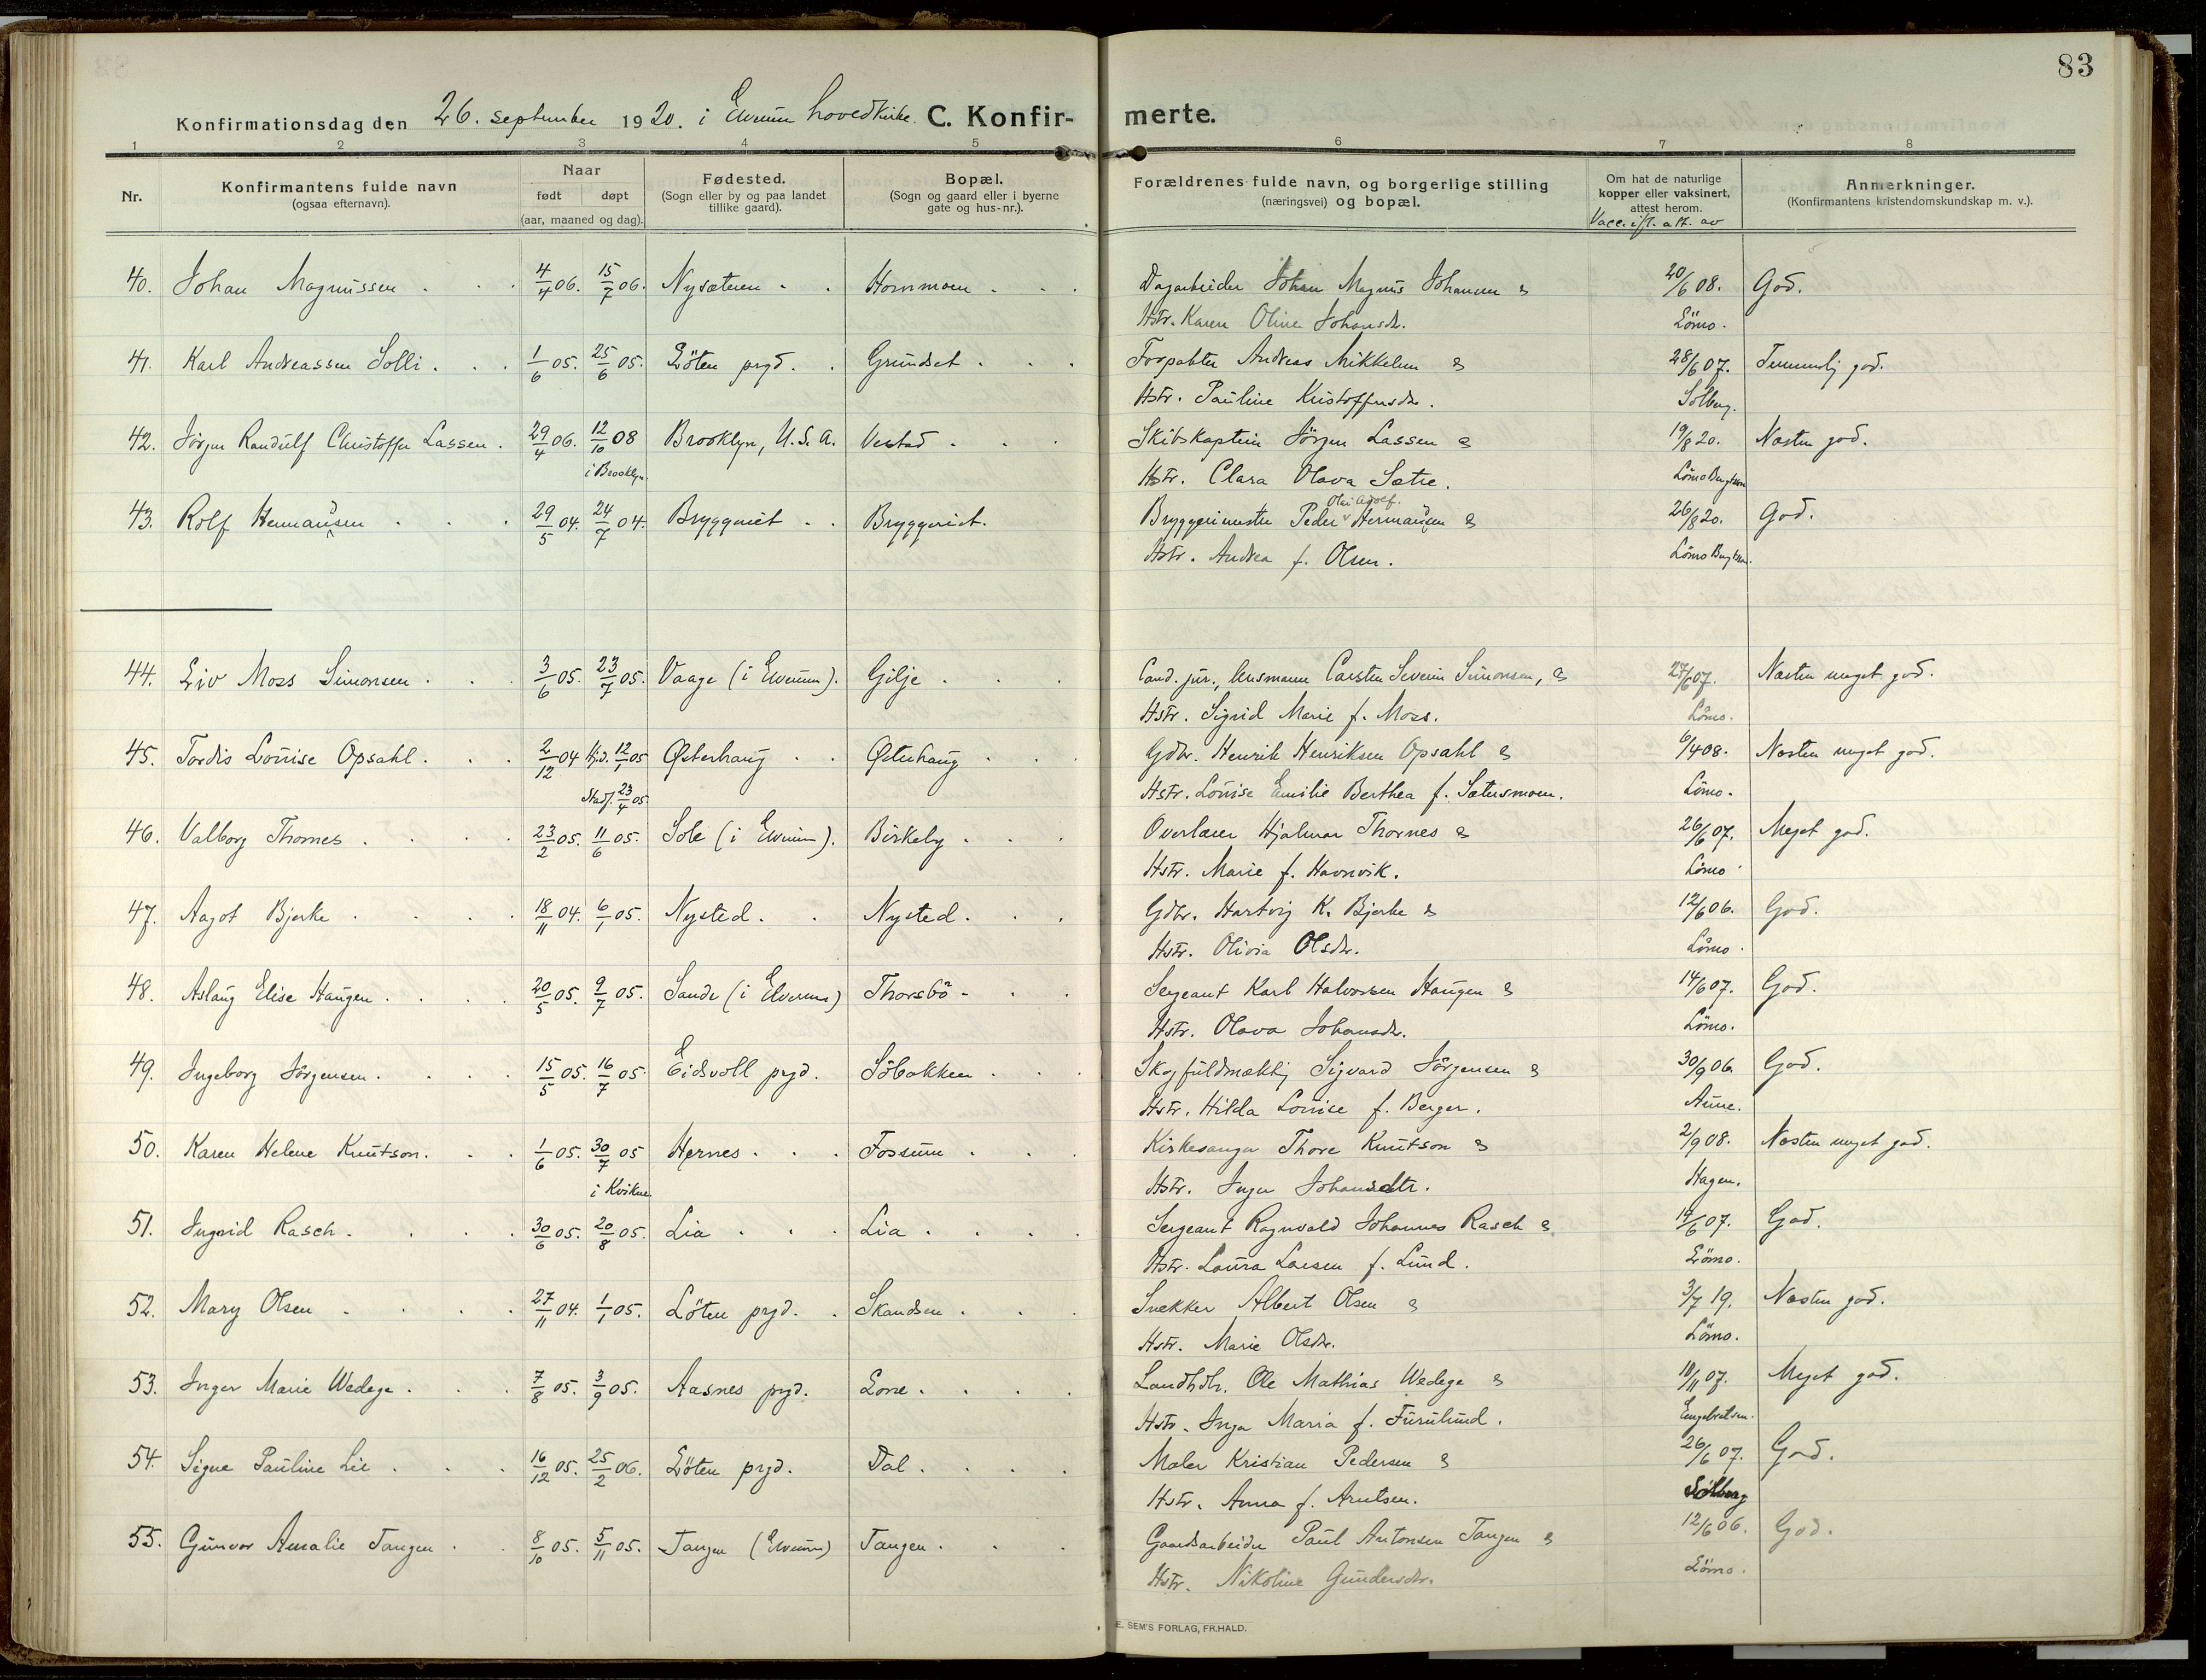 83
Konfirmationsdag den 26. september 1920. i Elverum hovedkirke. C. Konfirmerte.
1 2 3 4 5 6 7 8
Nr. Konfirmantens fulde navn (ogsaa efternavn). Naar født døpt (aar, maaned og dag). Fødested. (Sogn eller by og paa landet tillike gaard). Bopæl. (Sogn og gaard eller i byerne gate og hus-nr.). Forældrenes fulde navn, og borgerlige stilling (næringsvei) og bopæl. Om hat de naturlige kopper eller vaksinert, attest herom. Vacc. ifl. att. av Anmerkninger. (Konfirmantens kristendomskundskap m. v.).
40. Johan Magnussen 4/4 06. 15/7 06. Nysæteren Hornmoen Dagarbeider Johan Magnus Johansen & 20/6 08. God.
Hstr. Karen Oline Johansdr. Lömo.
41. Karl Andreassen Solli 1/6 05. 25/6 05. Löten prgd. Grundset Forpakter Andreas Mikkelsen & 28/6 07. Temmelig god.
Hstr. Pauline Kristoffersdr. Solberg.
42. Jörgen Randulf Christoffer Lassen 29/4 06. 12/10 08 Brooklyn, U.S.A. Vestad Skibskaptein Jörgen Lassen & 19/8 20. Næsten god.
i Brooklyn. Hstr. Clara Olava Sætre. Lömo Bengtson
43. Rolf Hermansen 29/5 04. 24/7 04. Bryggeriet Bryggeriet. Bryggerimester Peder Ole Adolf Hermansen & 26/8 20. God.
Hstr. Andrea f. Olsen. Lömo Bengtson.
44. Liv Moss Simonsen 3/6 05. 23/7 05. Vaage (i Elverum). Gilje Cand. jur., lensmann Carsten Severin Simonsen, & 27/6 07. Næsten meget god.
Hstr. Sigrid Marie f. Moss. Lömo.
45. Tordis Louise Opsahl 2/12 04 hjd. 12/1 05 Østerhaug Østerhaug Gdbr. Henrik Henriksen Opsahl & 6/4 08. Næsten meget god.
Stadf. 23/4 05 Hstr. Louise Emilie Berthea f. Sætersmoen. Lömo.
46. Valborg Thornes 23/2 05. 11/6 05. Sole (i Elverum). Birkeby Overlærer Hjalmar Thornes & 26/6 07. Meget god.
Hstr. Marie f. Havnvik. Lömo
47. Aagot Bjerke 18/11 04. 6/1 05. Nysted. Nysted. Gdbr. Hartvig K. Bjerke & 12/6 06. God.
Hstr. Olivia Olsdr. Lömo.
48. Aslaug Elise Haugen 20/5 05. 9/7 05. Sande (i Elverum) Thorsbö Sergeant Karl Halvorsen Haugen & 14/6 07. God.
Hstr. Olava Johansdr. Lömo.
49. Ingeborg Jörgensen 15/5 05. 16/7 05. Eidsvoll prgd. Söbakken Skogfuldmæktig Sigvard Jörgensen & 30/9 06. God.
Hstr. Hilda Louise f. Berger. Aune.
50. Karen Helene Knutson 1/6 05. 30/7 05 Hernes Fossum Kirkesanger Thore Knutson & 2/9 08. Næsten meget god.
i Kvikne. Hstr. Inger Johansdtr. Hagen.
51. Ingrid Rasch 30/6 05. 20/8 05. Lia Lia Sergeant Ragnvald Johannes Rasch & 19/6 07. God.
Hstr. Laura Larsen f. Lund. Lömo.
52. Mary Olsen 27/11 04. 1/1 05. Löten prgd. Skandsen Snekker Albert Olsen & 3/7 19. Næsten god.
Hstr. Marie Olsdr. Lömo.
53. Inger Marie Wedege 7/8 05. 3/9 05. Aasnes prgd. Lone Landhdl. Ole Mathias Wedege & 10/11 07. Meget god.
Hstr. Inga Maria f. Furulund. Engebretsen.
54. Signe Pauline Lie 16/12 05. 25/2 06. Löten prgd. Dal Maler Kristian Pedersen & 26/6 07. God.
Hstr. Anna f. Arntsen. Solberg
55. Gunvor Amalie Tangen 8/10 05. 5/11 05. Tangen (Elverum) Tangen Gaardsarbeider Paul Antonsen Tangen & 12/6 06. God.
Hstr. Nikoline Gundersdr. Lömo.
E. SEM'S FORLAG, FR.HALD.